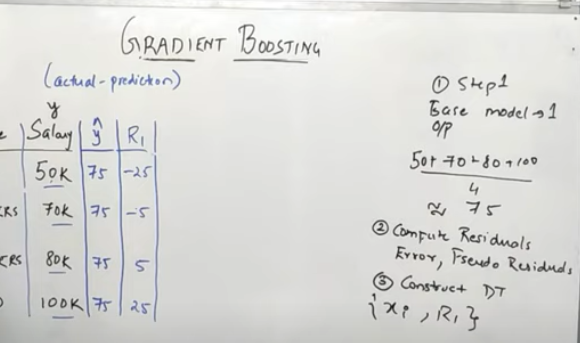 GRADIENT BOOSTING
(actual-prediction)
y
e Salary ŷ R1
50K 75 -25
ERS 70K 75 -5
ERS 80K 75 5
100K 75 25
① Step 1
Base model → 1
O/P
50+70+80+100
4
≈ 75
② Compute Residuals
Error, Pseudo Residuals
③ Construct DT
{xi, R1}